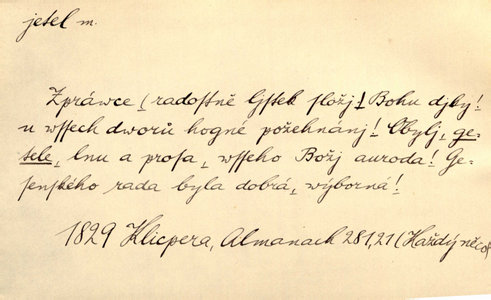 jetel m.
Zpráwce (radostně Gstek složj! Bohu djky!
u wssech dworů hogné požehnánj! Obylj, ge-
tele, lnu a prosa, wsseho Božj auroda! Ge-
senského rada byla dobrá, wýborná!
1829 Klicpera, Almanach 281,21 (Každý něco